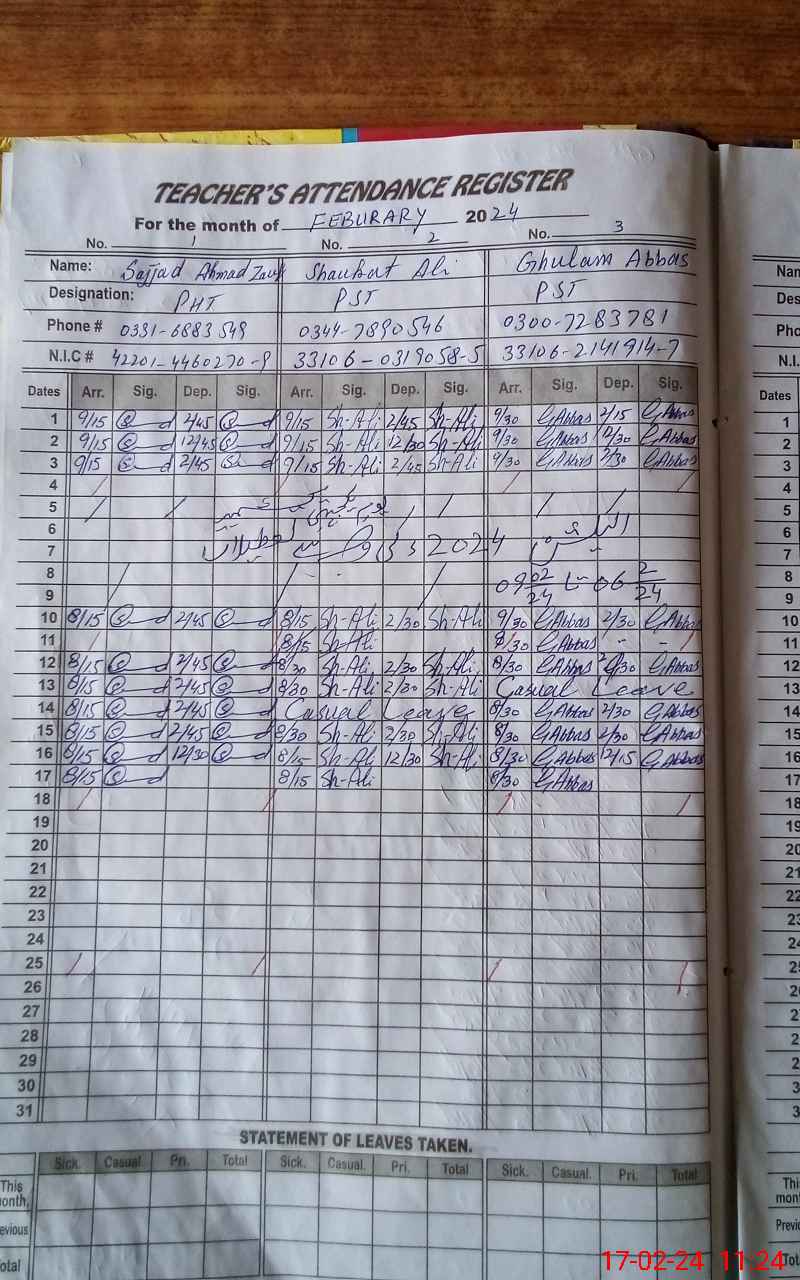 TEACHER'S ATTENDANCE REGISTER
For the month of FEBURARY 2024
No. 1 No. 2 No. 3
Name: Sajjad Ahmad Shaukat Ali Ghulam Abbas
Designation: PHT PST PST
Phone # 0331-6883549 0344-7890546 0300-7283781
N.I.C # 42201-4460270-9 33106-0319058-5 33106-2141914-7
Dates Arr. Sig. Dep. Sig. Arr. Sig. Dep. Sig. Arr. Sig. Dep. Sig.
1 9/15 2/45 9/15 Sh-Ali 2/45 Sh-Ali 9/30 GAbbas 2/15 GAbbas
2 9/15 12/45 9/15 Sh-Ali 12/30 Sh-Ali 9/30 GAbbas 12/30 GAbbas
3 9/15 2/45 9/15 Sh-Ali 2/45 Sh-Ali 9/30 GAbbas 2/30 GAbbas
4
5
6
7 2024
8
9 09 02/24 تا 06 2/24
10 8/15 2/45 8/15 Sh-Ali 2/30 Sh-Ali 9/30 GAbbas 2/30 GAbbas
11 8/15 Sh-Ali 8/30 GAbbas
12 8/15 2/45 8/30 Sh-Ali 2/30 Sh-Ali 8/30 GAbbas 2/30 GAbbas
13 8/15 2/45 8/30 Sh-Ali 2/30 Sh-Ali Casual Leave
14 8/15 2/45 Casual Leave 8/30 GAbbas 2/30 GAbbas
15 8/15 2/45 8/30 Sh-Ali 2/30 Sh-Ali 8/30 GAbbas 2/30 GAbbas
16 8/15 12/30 8/15 Sh-Ali 12/30 Sh-Ali 8/30 GAbbas 12/15 GAbbas
17 8/15 8/15 Sh-Ali 8/30 GAbbas
18
19
20
21
22
23
24
25
26
27
28
29
30
31
STATEMENT OF LEAVES TAKEN.
Sick. Casual. Pri. Total Sick. Casual. Pri. Total Sick. Casual. Pri. Total
This
onth,
evious
otal
Nan
Des
Pho
N.I.
Dates
1
2
3
4
5
6
7
8
9
10
11
12
13
14
15
16
17
18
19
20
21
22
23
24
25
2
2
2
2
3
3
Thi
mont
Previo
Tot
17-02-24 11:24